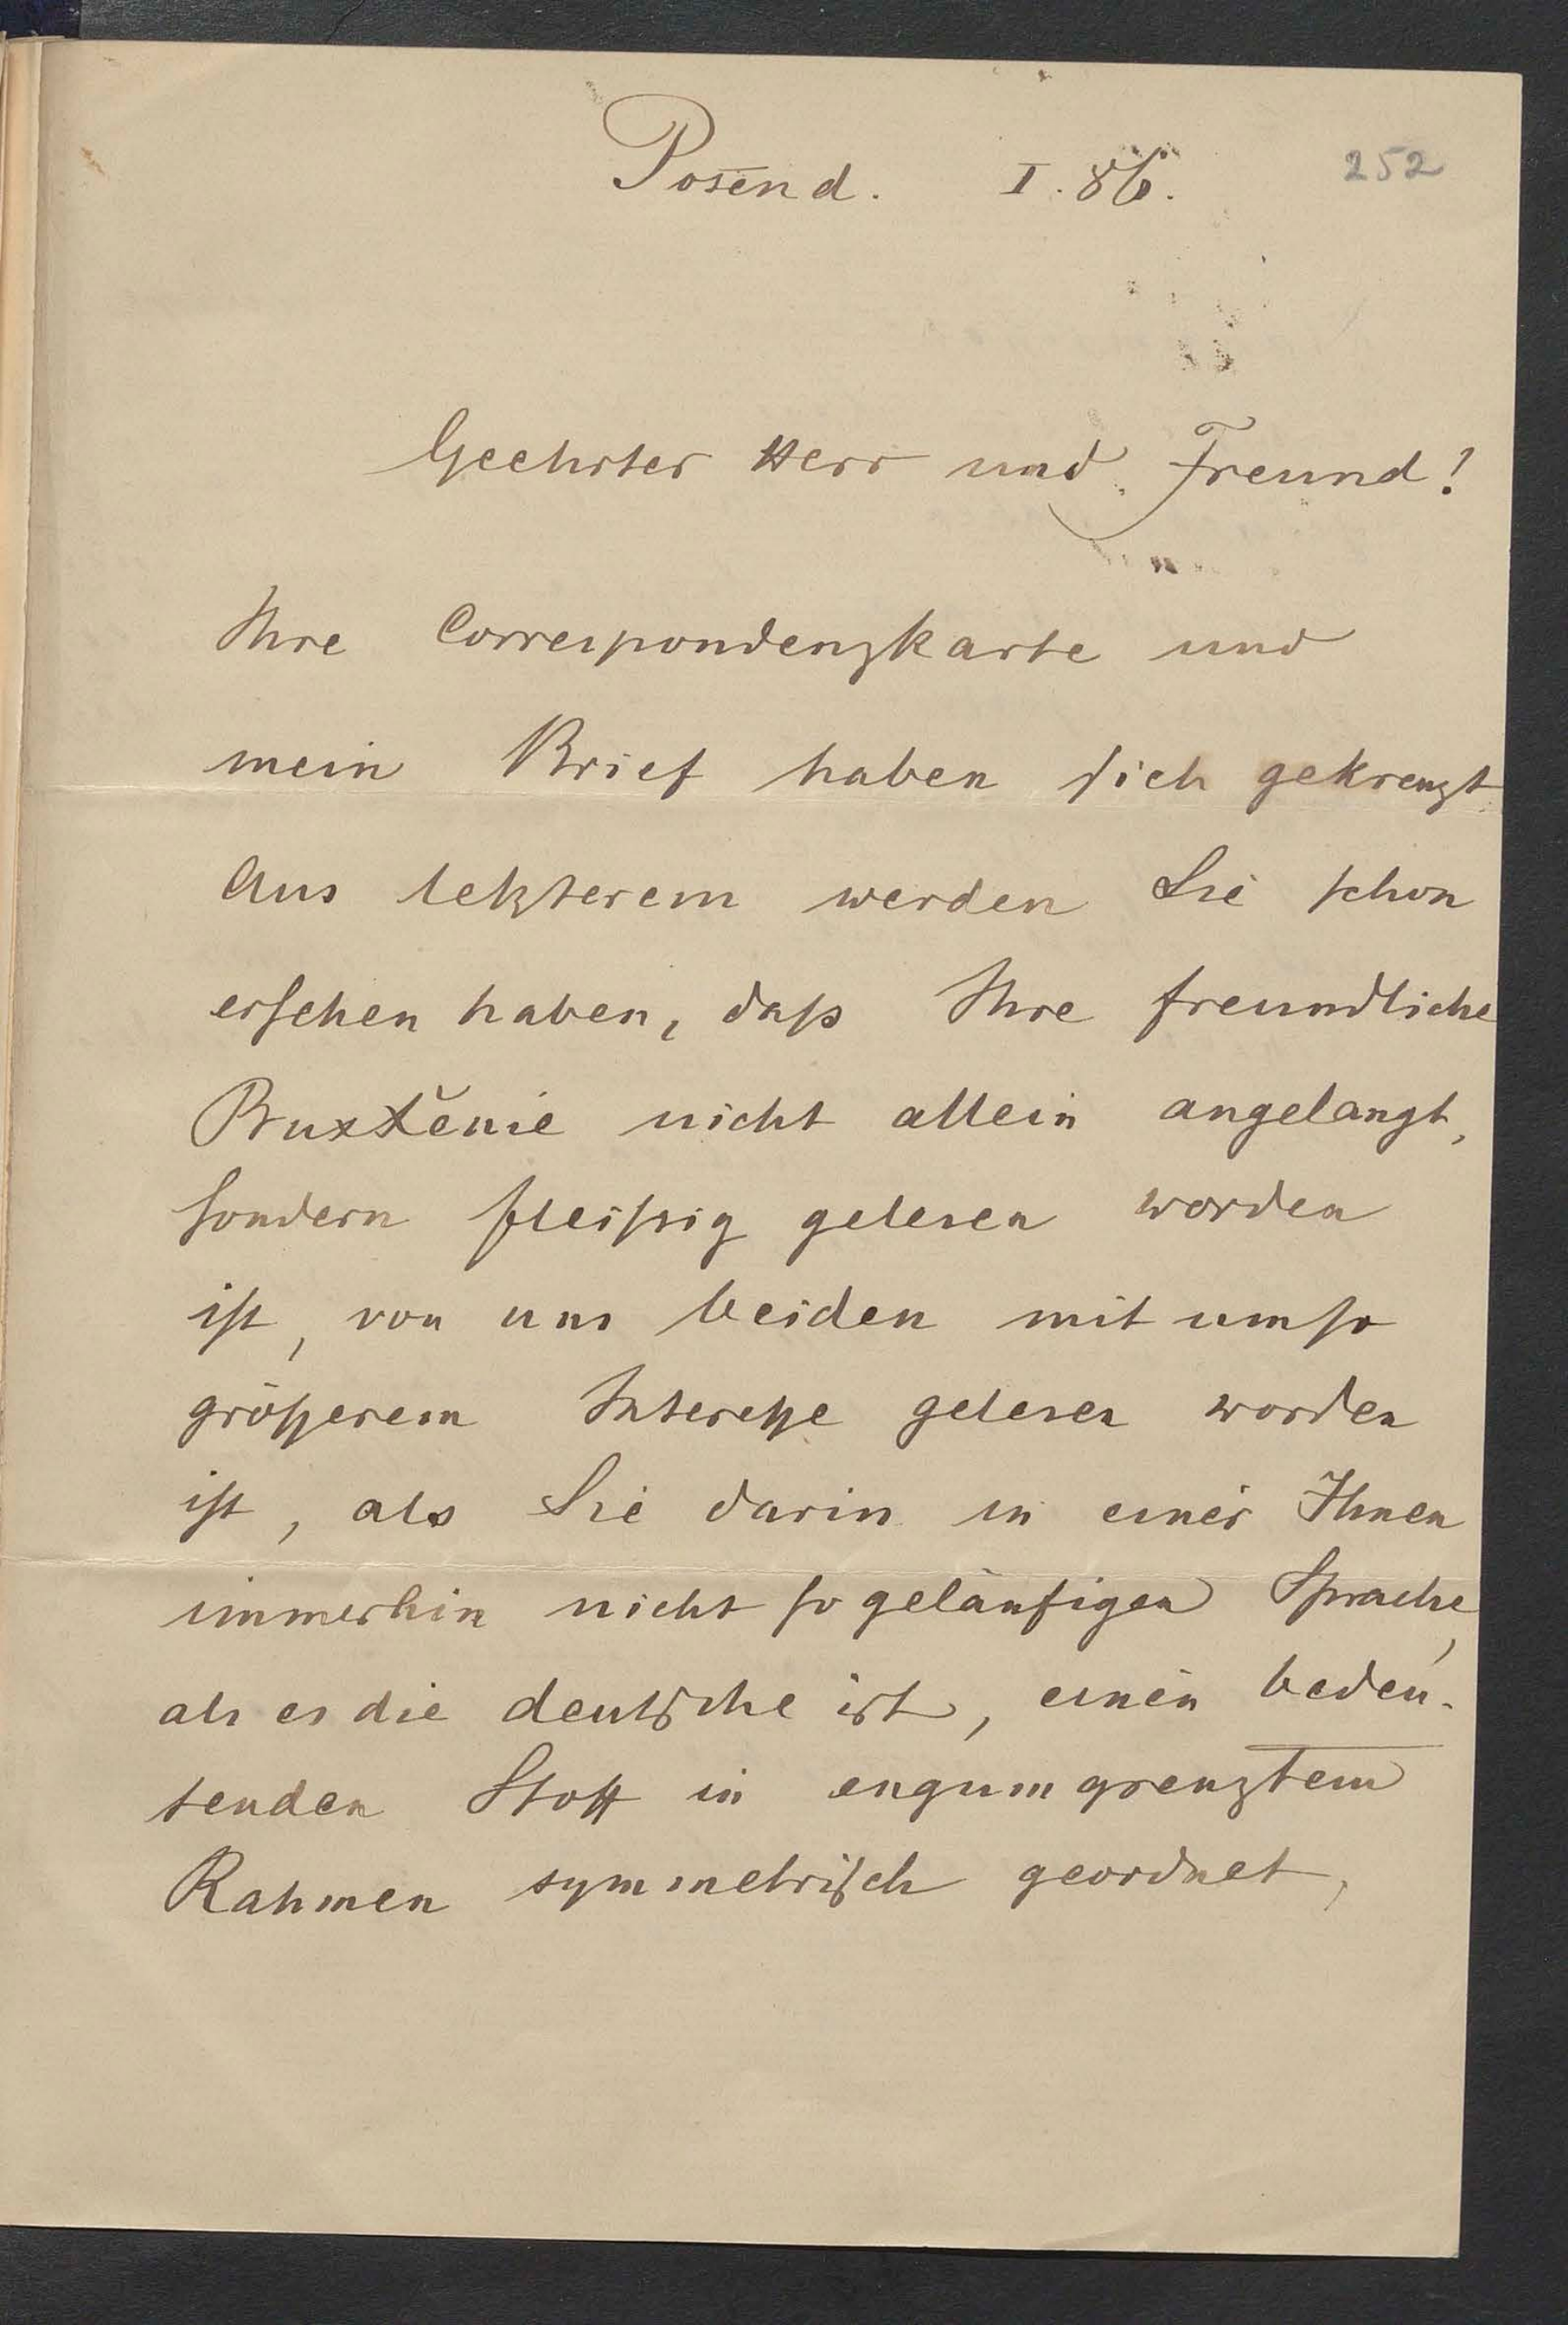 252
Posen d. I. 86.
Geehrter Herr und Freund!
Ihre Correspondenzkarte und
mein Brief haben sich gekreuzt
Aus letzterem werden Sie schon
ersehen haben, daß Ihre freundliche
nicht allein angelangt,
sondern fleißig gelesen worden
ist, von uns beiden mit umso
größerem Interesse gelesen worden
ist, als Sie darin in einer Ihnen
immerhin nicht so geläufigen Sprache,
als es die deutsche ist, einen bedeu-
tenden Stoff in engumgrenztem
Rahmen symmetrisch geordnet,